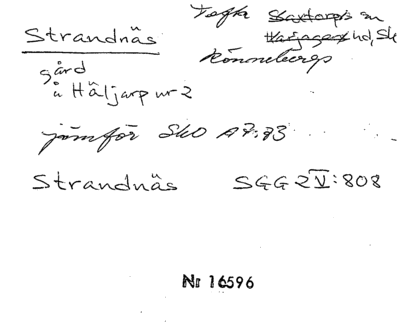 Strandnäs
gård
å Häljarp nr 2
Tofta Saxtorps sn
Harjagers hd, Sk
Rönnebergs
jämför SkO A7:83
Strandnäs SGG 2 V:808
Nr 16596